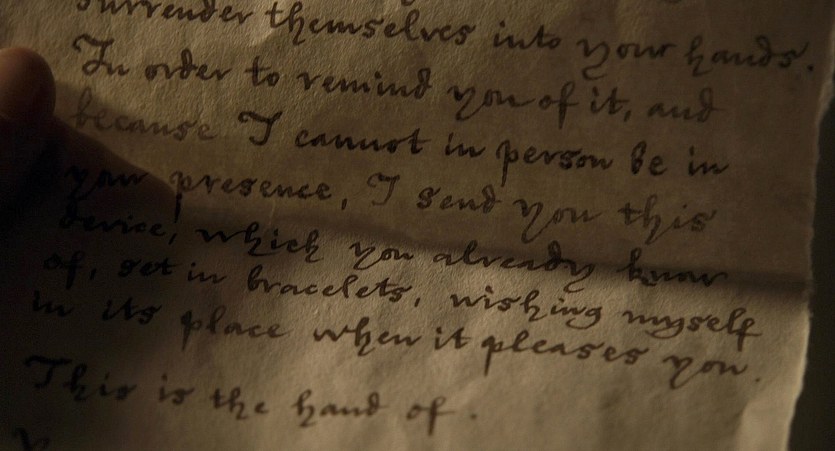 surrender themselves into your hands.
In order to remind you of it, and
because I cannot in person be in
your presence, I send you this
device, which you already know
of, set in bracelets, wishing myself
in its place when it pleases you.
This is the hand of.